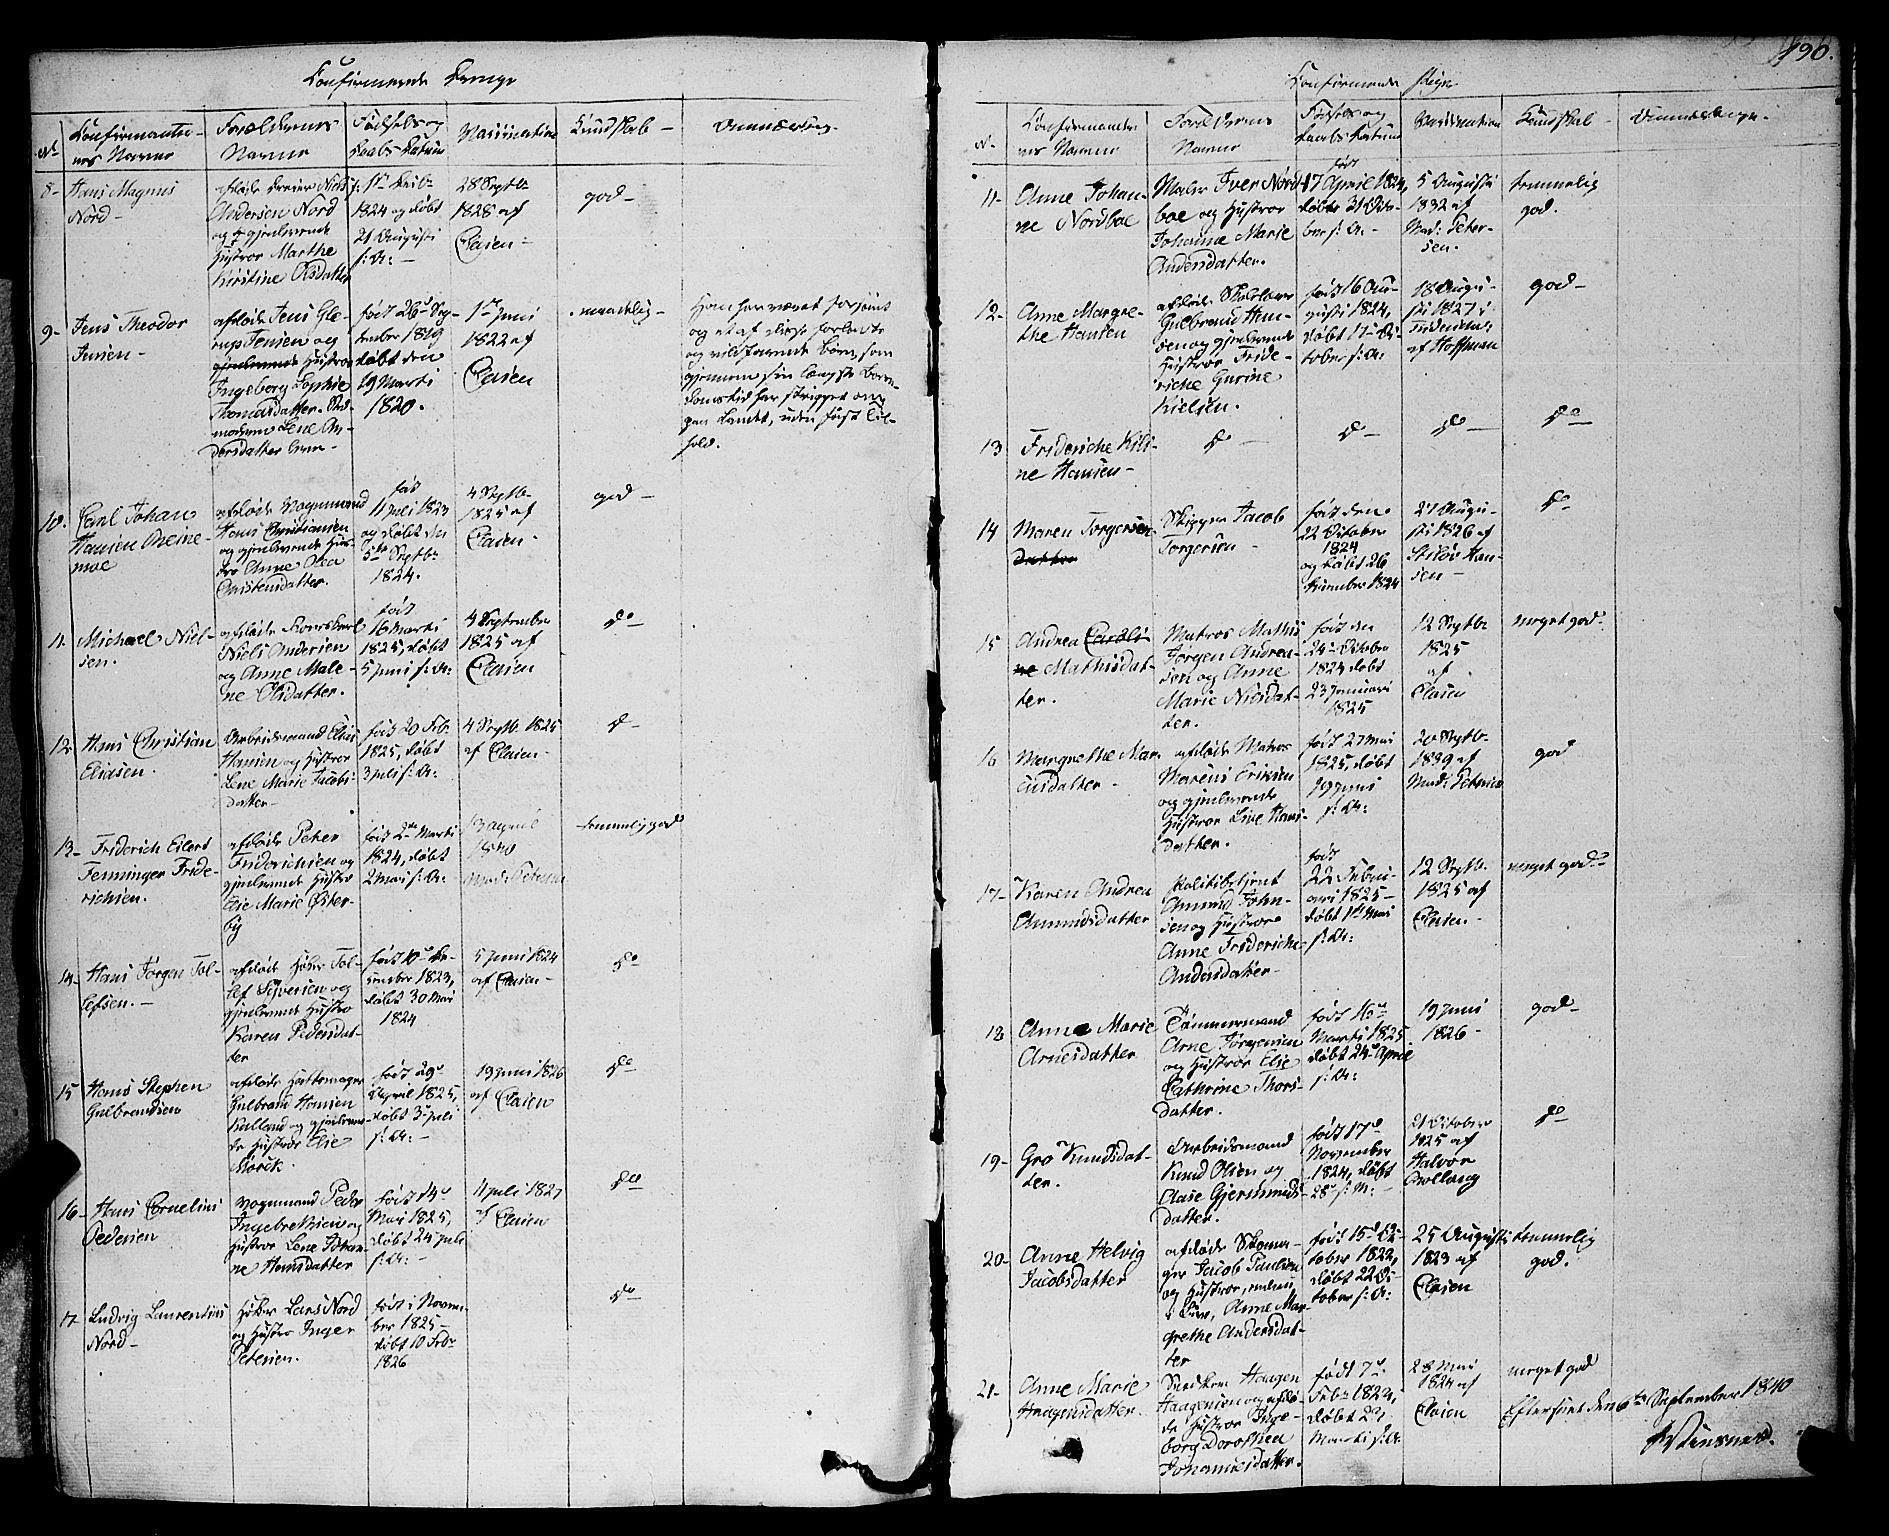 Confirmerede Drenge
No.
Confirmanter-
nes Navne
Forældrenes
Navne
Fødsels og
Daabs Datum
Vaccination
Kundskab
Anmærkning
8-
Hans Magnus
Nord-
afdøde Niels
Andersen Nord
og gjenlevende
Hustroe Marthe
Kirstine Olsdatter
1824 og døbt
21 Augusti
s: A: -
28 Septb.
1828 af
Claien-
god-
9-
Jens Theodor
Jensen-
afdøde Jens Gle-
rup Jensen og
gjenlevende Hustroe
Ingeborg Sophie
Thomasdatter.
Lene An-
dersdatter
født 26 Sep-
tember 1819
døbt den
19 Marti
1820.
1ste Juni
1822 af
Claien
maadelig-
Han har været forsømt
og et af disse forladte
og vildfarende Børn, som
gjennem sin længste Barn-
domstid har strippet om-
gen Landet, uden fast Til-
hold.
10.
Carl Johan
Hansen
afdøde Vognmand
Hans Christiansen
og gjenlevende Hus-
tro Anne Olea
Christensdatter.
født
11 Juli 1823
og døbt den
5te Septb.
1824.
4 Septb.
1825 af
Claien-
god-
11.
Michael Niel-
sen.
afdøde
Niels Andersen
og Anne Male-
ne Olsdatter.
født
16 Marti
1825, døbt
5 Juni s: A:
4 September
1825 af
Claien
do-
12
Hans Christian
Eliasen.
Arbeidsmand Elias
Hansen og Hustroe
Lene Marie Jacobs-
datter-
født 20 Feb.
1825, døbt
3 Juli s: A:
4 Septb. 1825
af Claien-
do-
13-
Friderich Eilert
Temminger Fride-
richsen.
afdøde Peter
Friderichsen og
gjenlevende Hustro
Elie Marie Øster-
by
født 2den Marti
1824, døbt
2 Mai s: A:
13 April
1840
Mad: Petersen
temmelig god
14-
Hans Jørgen Tol-
lefsen.-
afdøde Høker Tol-
lef Syversen og
gjenlevende Hustro
Karen Pedersdat-
ter
født 10de De-
cember 1823,
døbt 30 Mai
1824
5 Juni 1824
af Claien-
do-
15
Hans Stephen
Gulbrandsen
afdøde Hattemager
Gulbrand Hansen
Kulland og gjenleven-
de Hustroe Elie
Mørck.
født 29de
April 1825,
døbt 3de Juli
s: A: -
19 Juni 1826
af Claien
do
16-
Hans Cornelius
Pedersen
Vognmand Peder
Ingebrethsen og
Hustroe Lene Johan-
ne Hansdatter
født 14de
Mai 1825,
døbt 24 Juli
s: A: -
11 Juli 1827
af Claien
do
17-
Ludvig Laurentius
Nord-
Høker Lars Nord
og Hustro Inger
Petersen.
født i Novem-
ber 1825-
døbt 10 Feb.
1826
do
190.
Confirmerede Piger
N.
Confirmanter-
nes Navne
Forældrenes
Navne
Fødsels og
Daabs Datum
Vaccination
Kundskab
Anmærkning.
11-
Anne Johan-
ne Nordboe
Maler Iver Nord-
boe og Hustroe
Johanne Marie
Andersdatter.
født
17 April 1824,
døbt 31 Octo-
ber s: A: -
5 Augusti
1832 af
Mad: Peter-
sen.
temmelig
god.
12-
Anne Margre-
the Hansen
afdøde
Gulbrand Han-
sen og gjenlevende
Hustroe Fride-
riche Gurine
Nielsen.
født 16 Au-
gusti 1824,
døbt 17 Oc-
tober s: A:
18 Augu-
sti 1827 i
af Hoffman
god-
13
Frideriche
ne Hansen-
do-
do-
do-
do-
14
Maren Torgersen
datter
Skipper Jacob
Torgersen-
født den
22 October
1824
og døbt 26
December 1824
27 Augu-
sti 1826 af
Han-
sen-
do-
15
Andrea Caroli-
ne Mathisdat-
ter.
Matros Mathis
Jørgen Andrea-
sen og Anne
Marie Nilsdat-
ter.
født den
24de October
1824 døbt
23 Januari
1825
12 Septb.
1825
af
Claien
meget god.
16
Margrethe Mar-
cusdatter-
afdøde Matros
Marcus Eriksen
og gjenlevende
Hustroe Live Hans-
datter.
født 27 Mai
1825, døbt
19 Juni
s: A:
20 Septb.
1839 af
Mad: Petersen
god
17-
Karen Andrea
Amundsdatter
Politibetjent
Amund John-
sen og Hustroe
Anne Fridericha
Andersdatter-
født
22 Febru-
ari 1825-
døbt 1ste Mai
s: A:
12 Septb.
1825 af
Claien.
meget god
18
Anne Marie
Arnesdatter
Tømmermand
Arne Jørgensen
og Hustroe Elie
Cathrine Thors-
datter.
født 16de
Marti 1825
døbt 24de April
s: A:
19 Juni
1826-
god-
19-
Gro Knudsdat-
ter.
Arbeidsmand
Knud Olsen og
Aase Gjermunds-
datter.
født 17de
November
1824, døbt
28de s: M:-
21 October
1825 af
Halvor
do-
20-
Anne Helvig
Jacobsdatter
afdøde Skoma-
ger Jacob Paulsen
og Hustroe,
i Live, Anne Mar-
grethe Andersdat-
ter
født 15de Oc-
tober 1822,
døbt 22 Oc-
tober s: A:
25 Augusti
1823 af
Claien
temmelig
god.
21-
Anne Marie
Haagensdatter.
Snedker Haagen
Haagensen og afdø-
de Hustroe Inge-
borg Dorothea
Johannesdatter.
født 7de
Feb. 1823,
døbt 23
Marti s: A:
28 Mai
1824 af
Claien
meget god
Efterseet den 6te September 1840